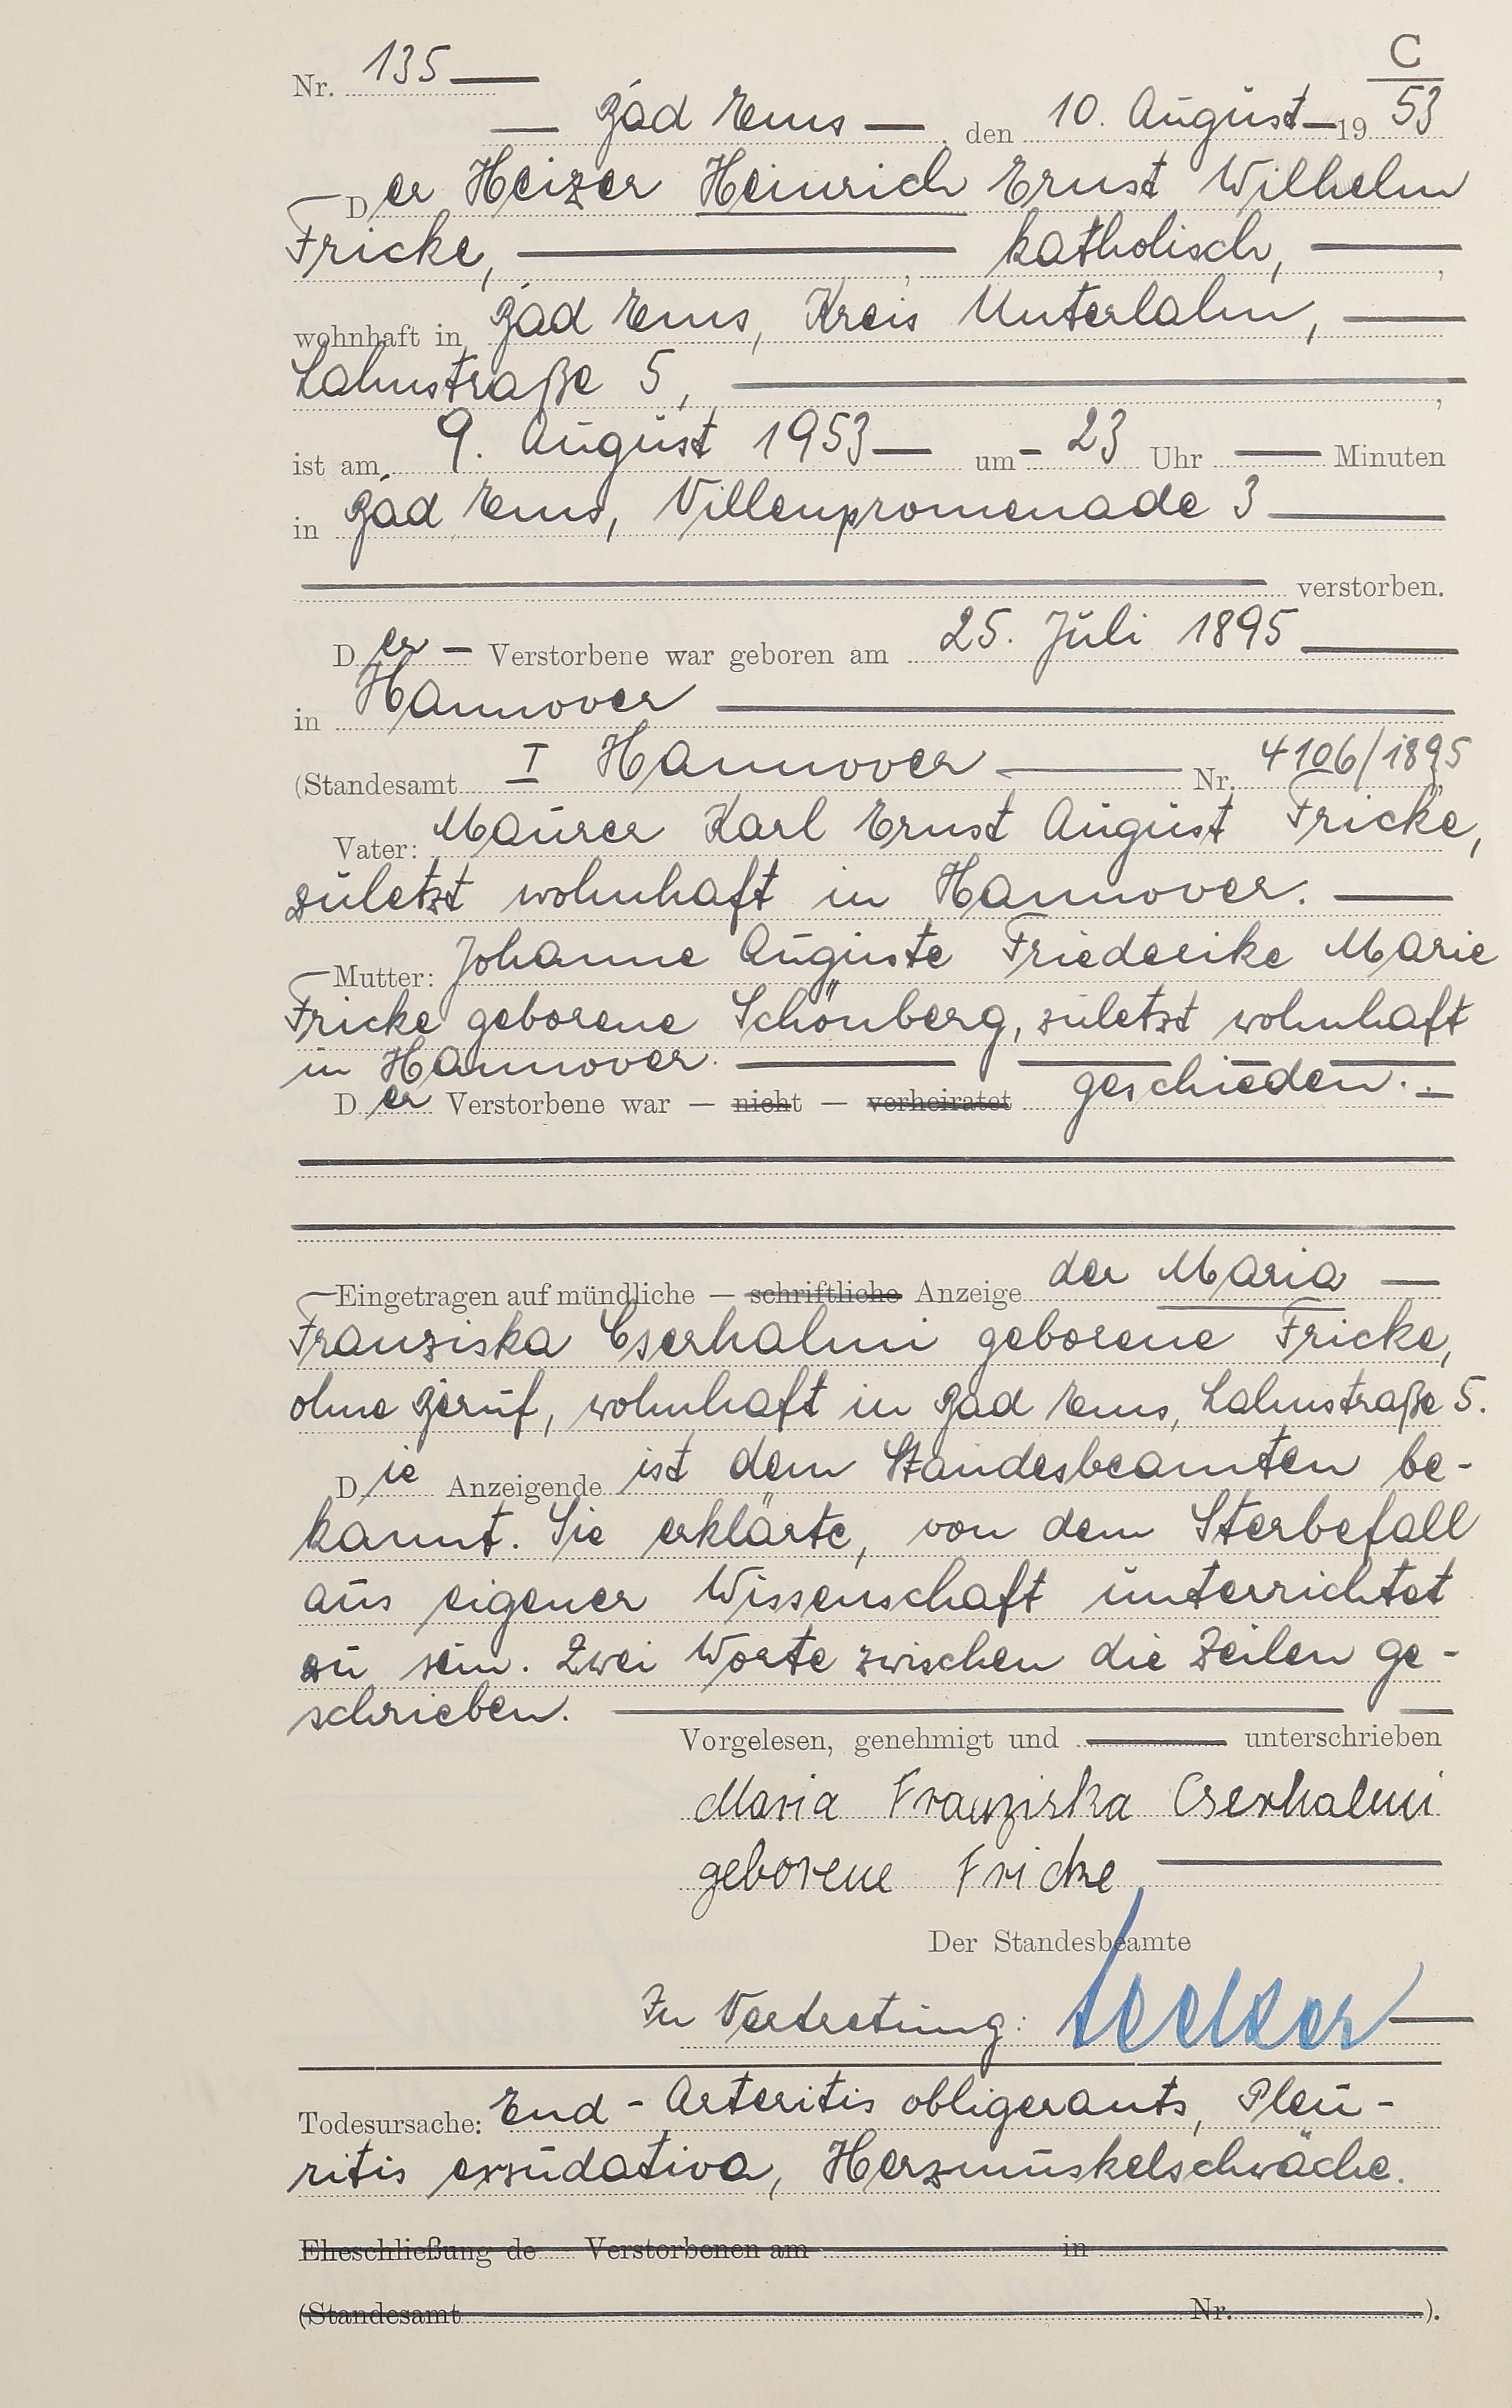 C
Nr. 135
Bad Ems, den 10. August 19 53
Der Heizer Heinrich Ernst Wilhelm
Fricke, katholisch,
wohnhaft in Bad Ems, Kreis Unterlahn,
Lahnstraße 5,
ist am 9. August 1953 um 23 Uhr Minuten
in Bad Ems, Villenpromenade 3
verstorben.
Der Verstorbene war geboren am 25. Juli 1895
in Hannover
(Standesamt I Hannover Nr. 4106/1895
Vater: Maurer Karl Ernst August Fricke,
zuletzt wohnhaft in Hannover.
Mutter: Johanne Auguste Friederike Marie
Fricke geborene Schönberg, zuletzt wohnhaft
in Hannover.
Der Verstorbene war — nicht — verheiratet geschieden.
Eingetragen auf mündliche — schriftliche Anzeige der Maria
Franziska Cserhalmi geborene Fricke,
ohne Beruf, wohnhaft in Bad Ems, Lahnstraße 5.
Die Anzeigende ist dem Standesbeamten be-
kannt. Sie erklärte, von dem Sterbefall
aus eigener Wissenschaft unterrichtet
zu sein. Zwei Worte zwischen die Zeilen ge-
schrieben.
Vorgelesen, genehmigt und unterschrieben
Maria Franziska Cserhalmi
geborene Fricke
Der Standesbeamte
In Vertretung:
Todesursache: End-Arteritis obligerants, Pleu-
ritis exsudativa, Herzmuskelschwäche.
Eheschließung de Verstorbenen am in
(Standesamt Nr. ).